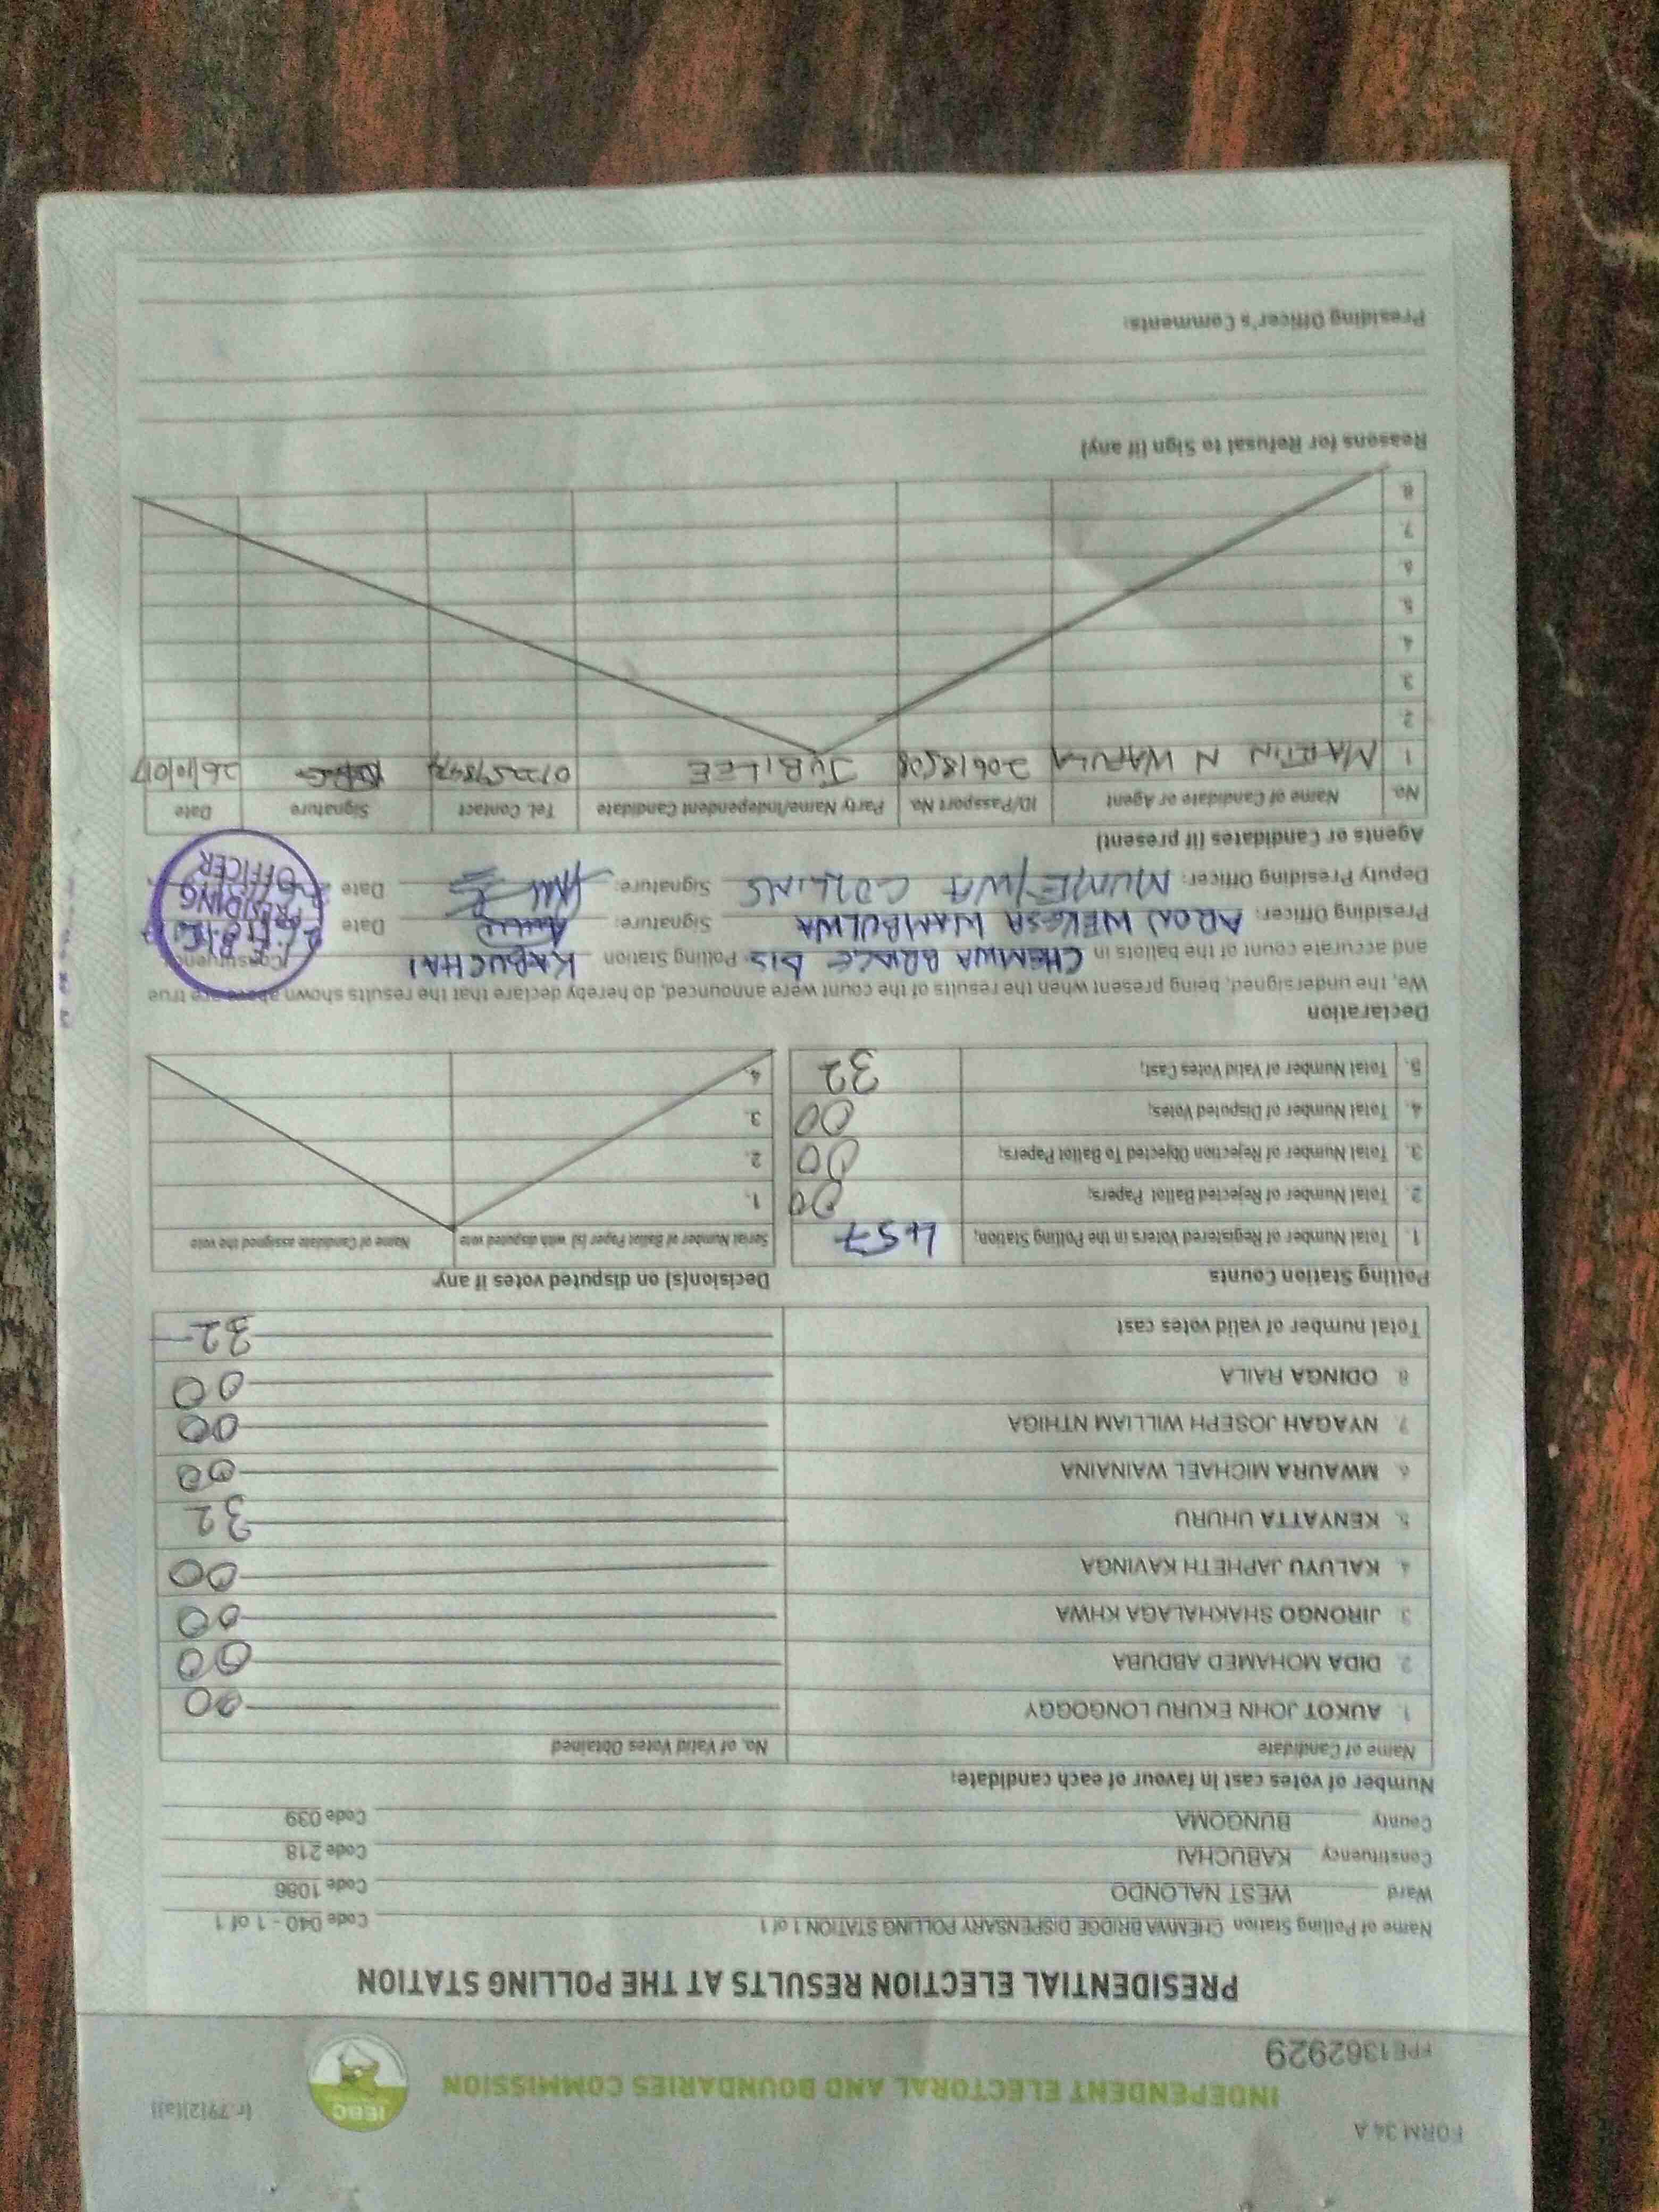 FORM 34 A
(r.79(2)(a))
INDEPENDENT ELECTORAL AND BOUNDARIES COMMISSION
IEBC
FPE1362929
PRESIDENTIAL ELECTION RESULTS AT THE POLLING STATION
Name of Polling Station CHEMWA BRIDGE DISPENSARY POLLING STATION 1 of 1 Code 040 - 1 of 1
Ward WEST NALONDO Code 1086
Constituency KABUCHAI Code 218
County BUNGOMA Code 039
Number of votes cast in favour of each candidate:
Name of Candidate No. of Valid Votes Obtained
1. AUKOT JOHN EKURU LONGOGGY 00
2. DIDA MOHAMED ABDUBA 00
3. JIRONGO SHAKHALAGA KHWA 00
4. KALUYU JAPHETH KAVINGA 00
5. KENYATTA UHURU 32
6. MWAURA MICHAEL WAINAINA 00
7. NYAGAH JOSEPH WILLIAM NTHIGA 00
8. ODINGA RAILA 00
Total number of valid votes cast 32
Polling Station Counts Decision(s) on disputed votes if any
1. Total Number of Registered Voters in the Polling Station; 457 Serial Number of Ballot Paper (s) with disputed vote Name of Candidate assigned the vote
2. Total Number of Rejected Ballot Papers; 00 1.
3. Total Number of Rejection Objected To Ballot Papers; 00 2.
4. Total Number of Disputed Votes; 00 3.
5. Total Number of Valid Votes Cast; 32 4.
Declaration
We, the undersigned, being present when the results of the count were announced, do hereby declare that the results shown above are true
and accurate count of the ballots in CHEMWA BRIDGE DIS Polling Station KABUCHAI Constituency
Presiding Officer: ARON WEKESA WAMBULWA Signature: Date
Deputy Presiding Officer: COLLINS Signature: Date
I.E.B.C. PRESIDING OFFICER
Agents or Candidates (if present)
No. Name of Candidate or Agent ID/Passport No. Party Name/Independent Candidate Tel. Contact Signature Date
1 MARTIN N WAFULA 20618508 JUBILEE 26/10/017
2
3
4
5
6
7
8
Reasons for Refusal to Sign (if any)
Presiding Officer's Comments: